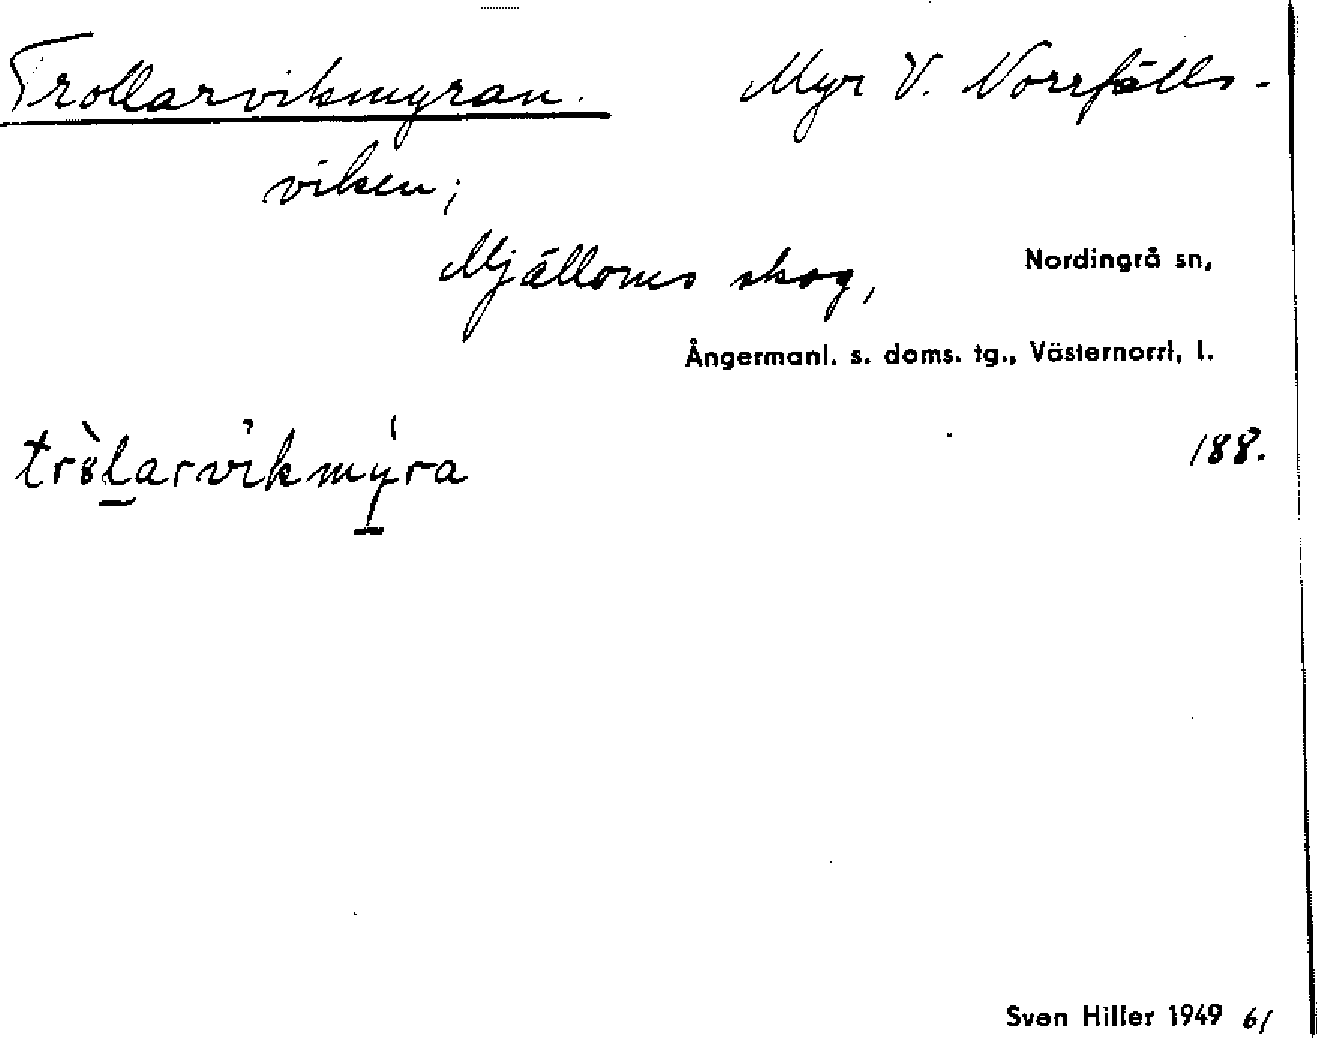 Trollarvikmyran. Myr V. Norrfälls-
viken;
Mjälloms skog, Nordingrå sn,
Ångermanl. s. doms. tg., Västernorrl, l.
188.
Sven Hiller 1949 61